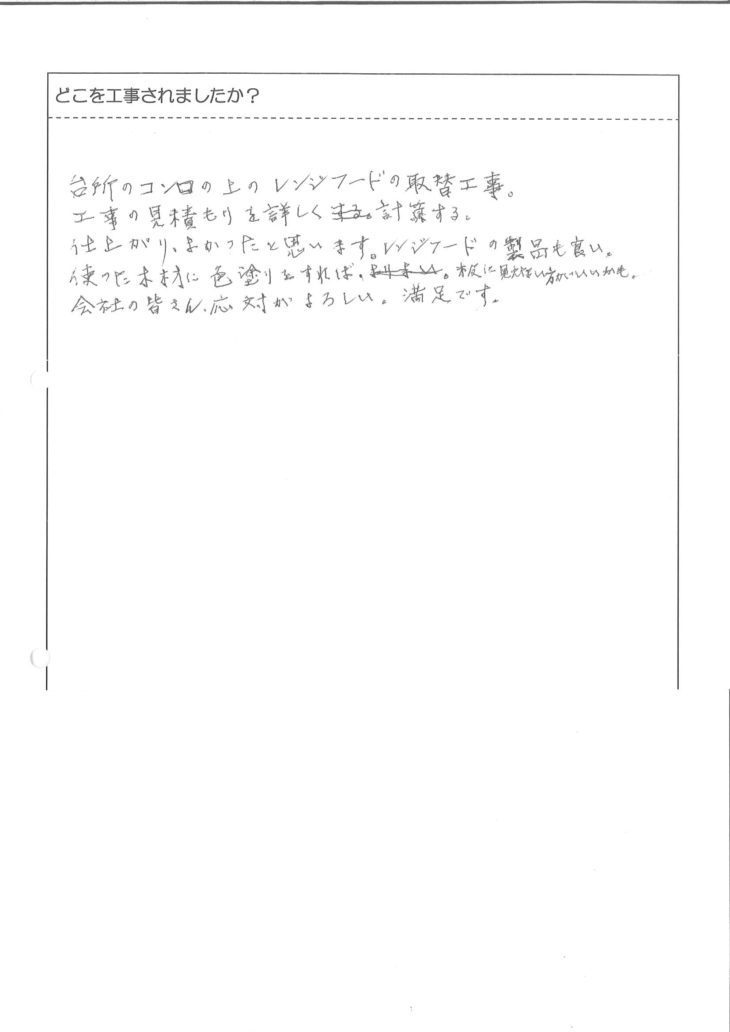 どこを工事されましたか？
台所のコンロの上のレンジフードの取替工事。
工事の見積もりを詳しく計算する。
仕上がり、よかったと思います。レンジフードの製品も良い。
使った木材に色塗りをすれば、。板に見えない方がいいかも。
会社の皆さん、応対がよろしい。満足です。